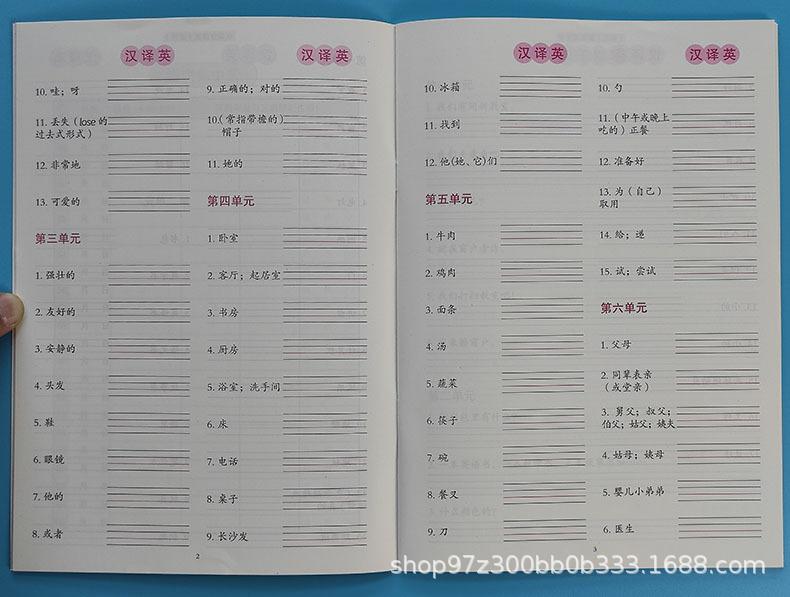 汉译英
10. 哇；呀
11. 丢失（lose 的
过去式形式）
12. 非常地
13. 可爱的
第三单元
1. 强壮的
2. 友好的
3. 安静的
4. 头发
5. 鞋
6. 眼镜
7. 他的
8. 或者
汉译英
9. 正确的；对的
10.（常指带檐的）
帽子
11. 她的
第四单元
1. 卧室
2. 客厅；起居室
3. 书房
4. 厨房
5. 浴室；洗手间
6. 床
7. 电话
8. 桌子
9. 长沙发
2
汉译英
10. 冰箱
11. 找到
12. 他(她、它)们
第五单元
1. 牛肉
2. 鸡肉
3. 面条
4. 汤
5. 蔬菜
6. 筷子
7. 碗
8. 餐叉
9. 刀
汉译英
10. 勺
11.（中午或晚上
吃的）正餐
12. 准备好
13. 为（自己）
取用
14. 给；递
15. 试；尝试
第六单元
1. 父母
2. 同辈表亲
（或堂亲）
3. 舅父；叔父；
伯父；姑父；姨夫
4. 姑母；姨母
5. 婴儿小弟弟
6. 医生
3
shop97z300bb0b333.1688.com